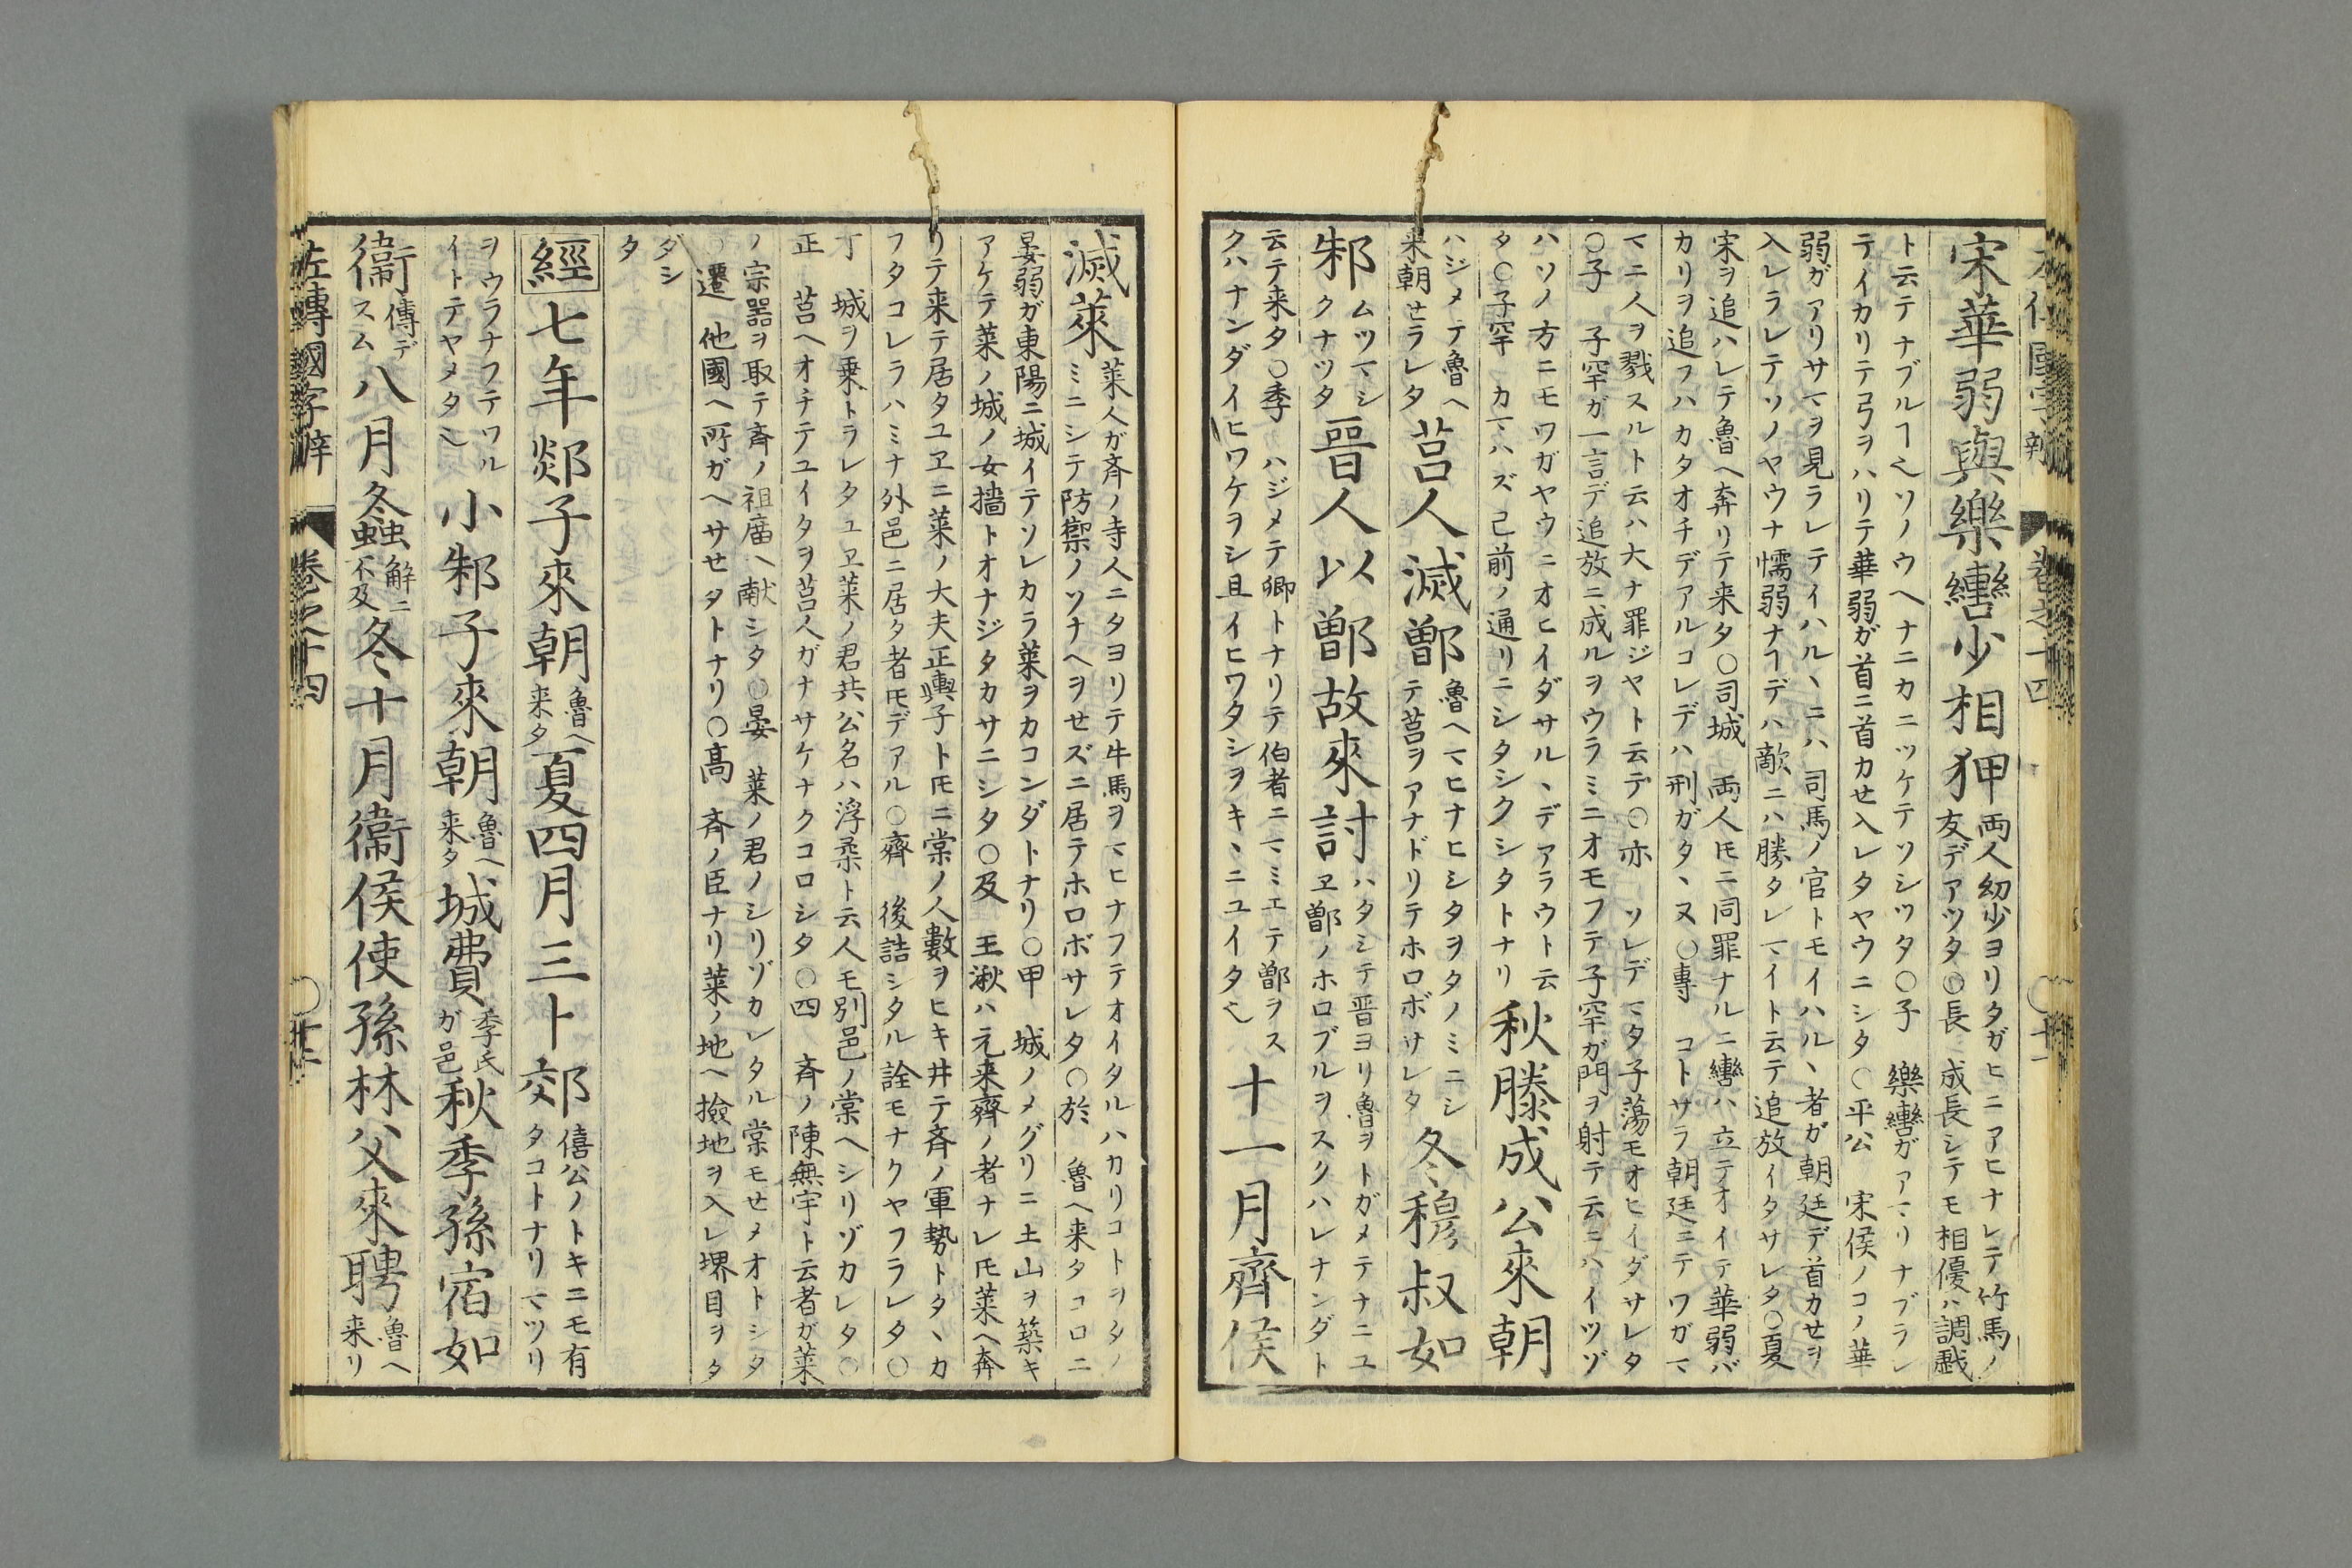 宋華弱與樂轡少相狎両人幼少ヨリタガヒニアヒナレテ竹馬ノ
友デアツタ○長成長シテモ相優ハ調戯
ト云テナブルヿ也ソノウヘナニカニツケテソシツタ○子樂轡ガアマリナブラレ
テイカリテ弓ヲハリテ華弱ガ首ニ首カセ入レタヤウニシタ○平公宋侯ノコノ華
弱ガアリサマヲ見ラレテイハルヽニハ司馬ノ官トモイハルヽ者ガ朝廷デ首カセヲ
入レラレテソノヤウナ懦弱ナヿデハ敵ニハ勝タレマイト云テ追放イタサレタ○夏
宋ヲ追ハレテ魯ヘ奔リテ来タ○司城両人圧ニ同罪ナルニ轡ハ立テオイテ華弱バ
カリヲ追フハカタオチデアルコレデハ刑ガタヽヌ○專コトサラ朝廷ニテワガマ
マニ人ヲ戮スルト云ハ大ナ罪ジヤト云テ○亦ソレデマタ子蕩モオヒイダサレタ
○子子罕ガ一言デ追放ニ成ルヲウラミニオモフテ子罕ガ門ヲ射テ云ニハイツゾ
ハソノ方ニモワガヤウニオヒイダサルヽデアラウト云
タ○子罕カマハズ已前ノ通リニシタシクシタトナリ秋滕成公來朝
ハジメテ魯ヘ
来朝セラレタ莒人滅鄫魯ヘマヒナヒシタヲタノミニシ
テ莒ヲアナドリテホロボサレタ冬穆叔如
邾ムツマシ
クナツタ晉人以鄫故來討ハタシテ晋ヨリ魯ヲトガメテナニユ
ヱ鄫ノホロブルヲスクハレナンダト
云テ来タ○季ハジメテ卿トナリテ伯者ニマミエテ鄫ヲス
クハナンダイヒワケヲシ且イヒワタシヲキヽニユイタ也十一月齊侯
滅萊萊人ガ斉ノ寺人ニタヨリテ牛馬ヲマヒナフテオイタルハカリコトヲタノ
ミニシテ防禦ノソナヘヲセズニ居テホロボサレタ○於魯ヘ来タコロニ
晏弱ガ東陽ニ城イテソレカラ萊ヲカコンダトナリ○甲城ノメグリニ土山ヲ築キ
アケテ萊ノ城ノ女墻トオナジタカサニシタ○及王湫ハ元来齊ノ者ナレ圧萊ヘ奔
リテ来テ居タユヱニ萊ノ大夫正輿子ト圧ニ棠ノ人數ヲヒキ井テ斉ノ軍勢トタヽカ
フタコレラハミナ外邑ニ居タ者圧デアル○齊後詰シタル詮モナクヤフラレタ○
丁城ヲ乗トラレタユヱ萊ノ君共公名ハ浮柔ト云人モ別邑ノ棠ヘシリゾカレタ○
正莒ヘオチテユイタヲ莒人ガナサケナクコロシタ○四斉ノ陳無宇ト云者ガ萊
ノ宗器ヲ取テ斉ノ祖廟ヘ献シタ○晏萊ノ君ノシリゾカレタル棠モセメオトシタ
遷他國ヘ所ガヘサセタトナリ○髙斉ノ臣ナリ萊ノ地ヘ撿地ヲ入レ堺目ヲタ
ダシ
タ
經七年郯子來朝魯ヘ
来タ夏四月三卜郊僖公ノトキニモ有
タコトナリマツリ
ヲウラナフテワル
イトテヤメタ也小邾子來朝魯ヘ
来タ城費季氏
ガ邑秋季孫宿如
衞傳デ
スム八月螽解ニ
不及冬十月衞侯使孫林父來聘魯ヘ
来リ
左傳國字辯　卷之十四